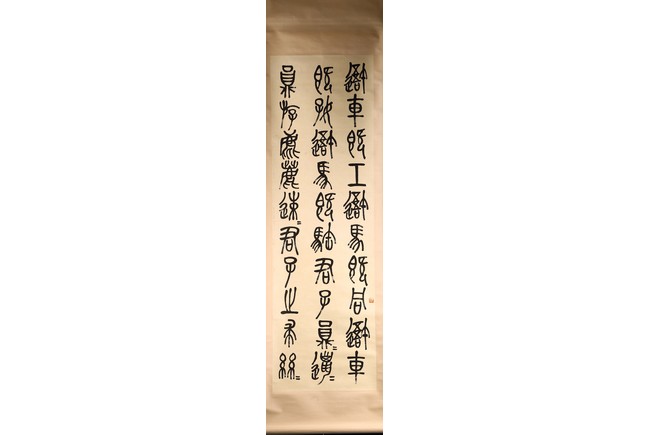 吾車既工吾馬既同吾車
既好吾馬既𩣡君子員=邋=
員斿麀鹿速=君子之求